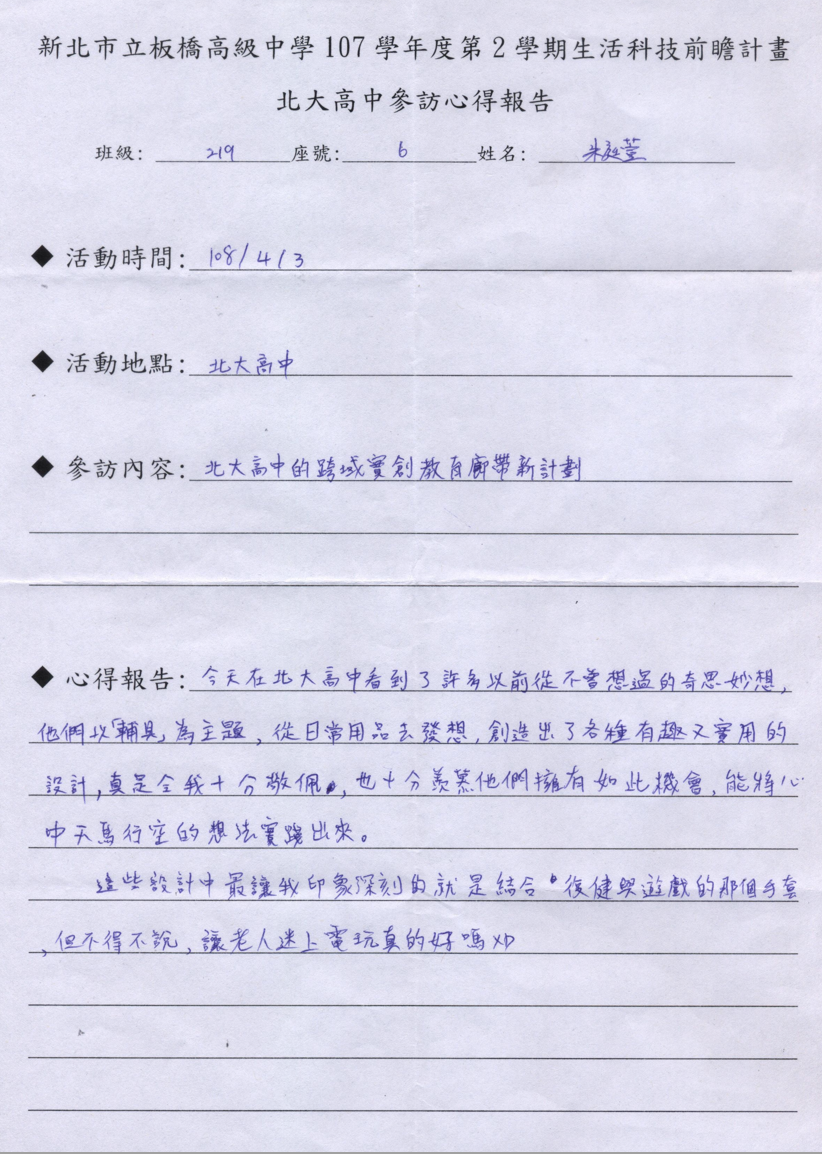 新北市立板橋高級中學 107 學年度第 2 學期生活科技前瞻計畫
北大高中參訪心得報告
班級: 219 座號: 6 姓名: 朱庭萱
◆ 活動時間: 108/4/3
◆ 活動地點: 北大高中
◆ 參訪內容: 北大高中的跨域實創教育廊帶新計劃
◆ 心得報告: 今天在北大高中看到了許多以前從不曾想過的奇思妙想,
他們以「輔具」為主題,從日常用品去發想,創造出了各種有趣又實用的
設計,真是令我十分敬佩,也十分羨慕他們擁有如此機會,能將心
中天馬行空的想法實踐出來。
這些設計中最讓我印象深刻的就是結合復健與遊戲的那個手套
,但不得不說,讓老人迷上電玩真的好嗎XD